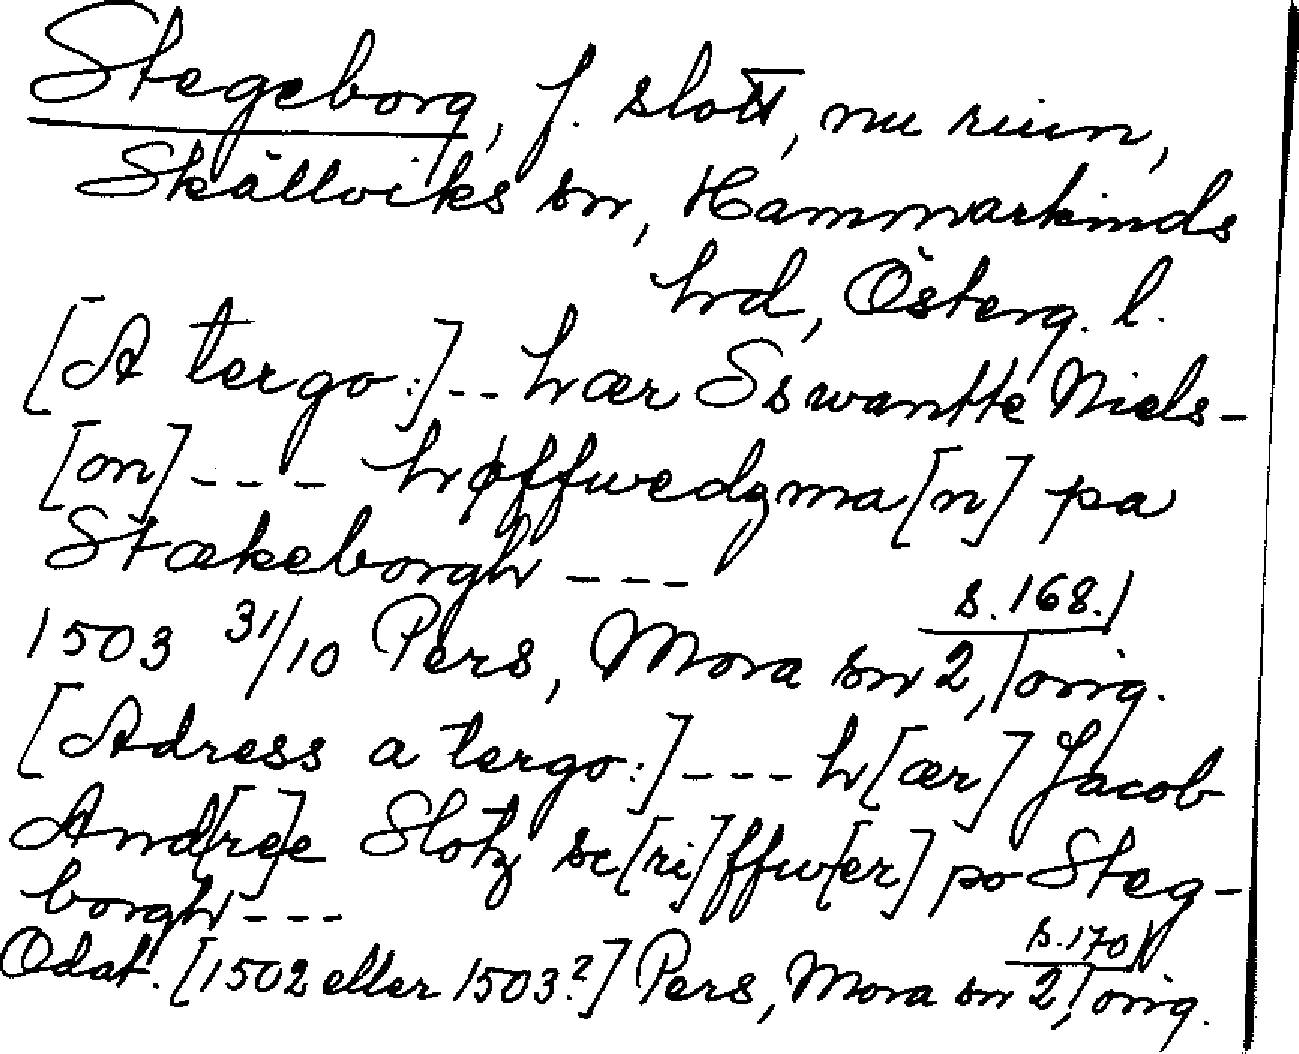 Stegeborg, f. slott, nu ruin,
Skällviks sn, Hammarkinds
hd, Österg. l.
[A tergo:] -- hær Sswantte Niels-
[on] --- høffwedzma[n] pa
Stækeborgh ---
1503 31/10 Pers, Mora sn 2, s. 168. orig.
[Adress a tergo:] --- h[ær] Jacob
And[re]e Slotz sc[ri]ffw[er] po Steg-
borgh ---
Odat. [1502 eller 1503?] Pers, Mora sn 2, s. 170 orig.